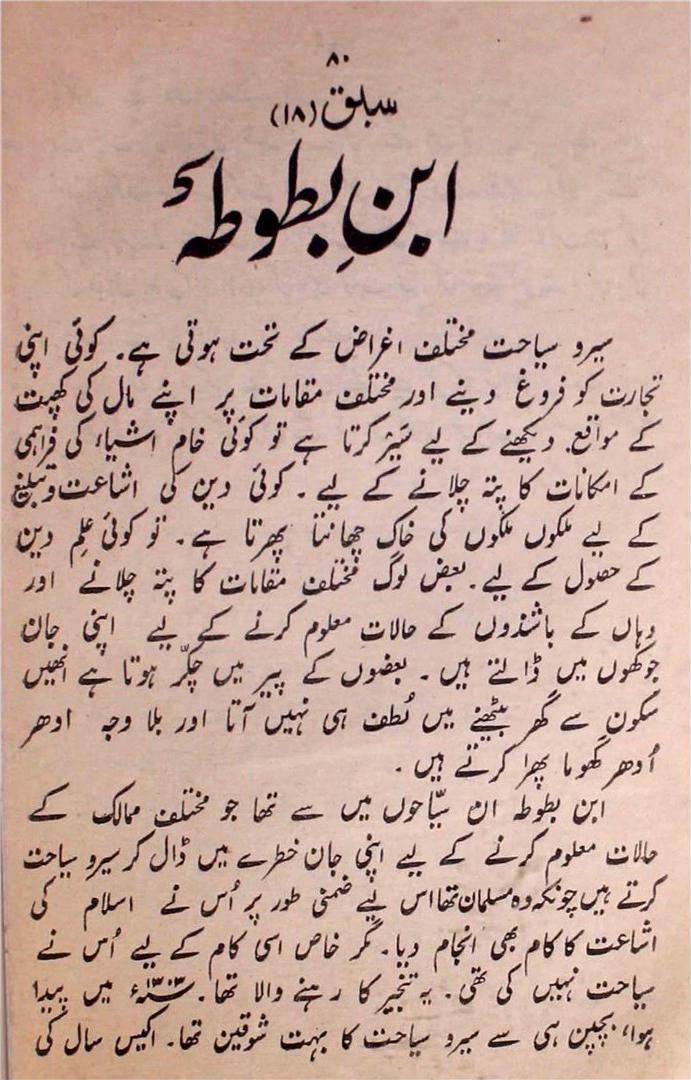 ۸۰
سبق (۱۸)
ابنِ بطوطہؒ
سیرو سیاحت مختلف اغراض کے تحت ہوتی ہے۔ کوئی اپنی
تجارت کو فروغ دینے اور مختلف مقامات پر اپنے مال کی کھپت
کے مواقع دیکھنے کے لیے سَیر کرتا ہے تو کوئی خام اشیاء کی فراہمی
کے امکانات کا پتہ چلانے کے لیے۔ کوئی دین کی اشاعت و تبلیغ
کے لیے ملکوں ملکوں کی خاک چھانتا پھرتا ہے۔ تو کوئی علمِ دین
کے حصول کے لیے۔ بعض لوگ مختلف مقامات کا پتہ چلانے اور
وہاں کے باشندوں کے حالات معلوم کرنے کے لیے اپنی جان
جوکھوں میں ڈالتے ہیں۔ بعضوں کے پیر میں چکّر ہوتا ہے انھیں
سکون سے گھر بیٹھنے میں لُطف ہی نہیں آتا اور بلا وجہ ادھر
اُدھر گھوما پھرا کرتے ہیں۔
ابن بطوطہ ان سیّاحوں میں سے تھا جو مختلف ممالک کے
حالات معلوم کرنے کے لیے اپنی جان خطرے میں ڈال کر سیرو سیاحت
کرتے ہیں چونکہ وہ مسلمان تھا اس لیے ضمنی طور پر اُس نے اسلام کی
اشاعت کا کام بھی انجام دیا۔ مگر خاص اسی کام کے لیے اُس نے
سیاحت نہیں کی تھی۔ یہ تنجیر کا رہنے والا تھا۔ ۱۳۰۳ء میں پیدا
ہوا، بچپن ہی سے سیرو سیاحت کا بہت شوقین تھا۔ اکیس سال کی